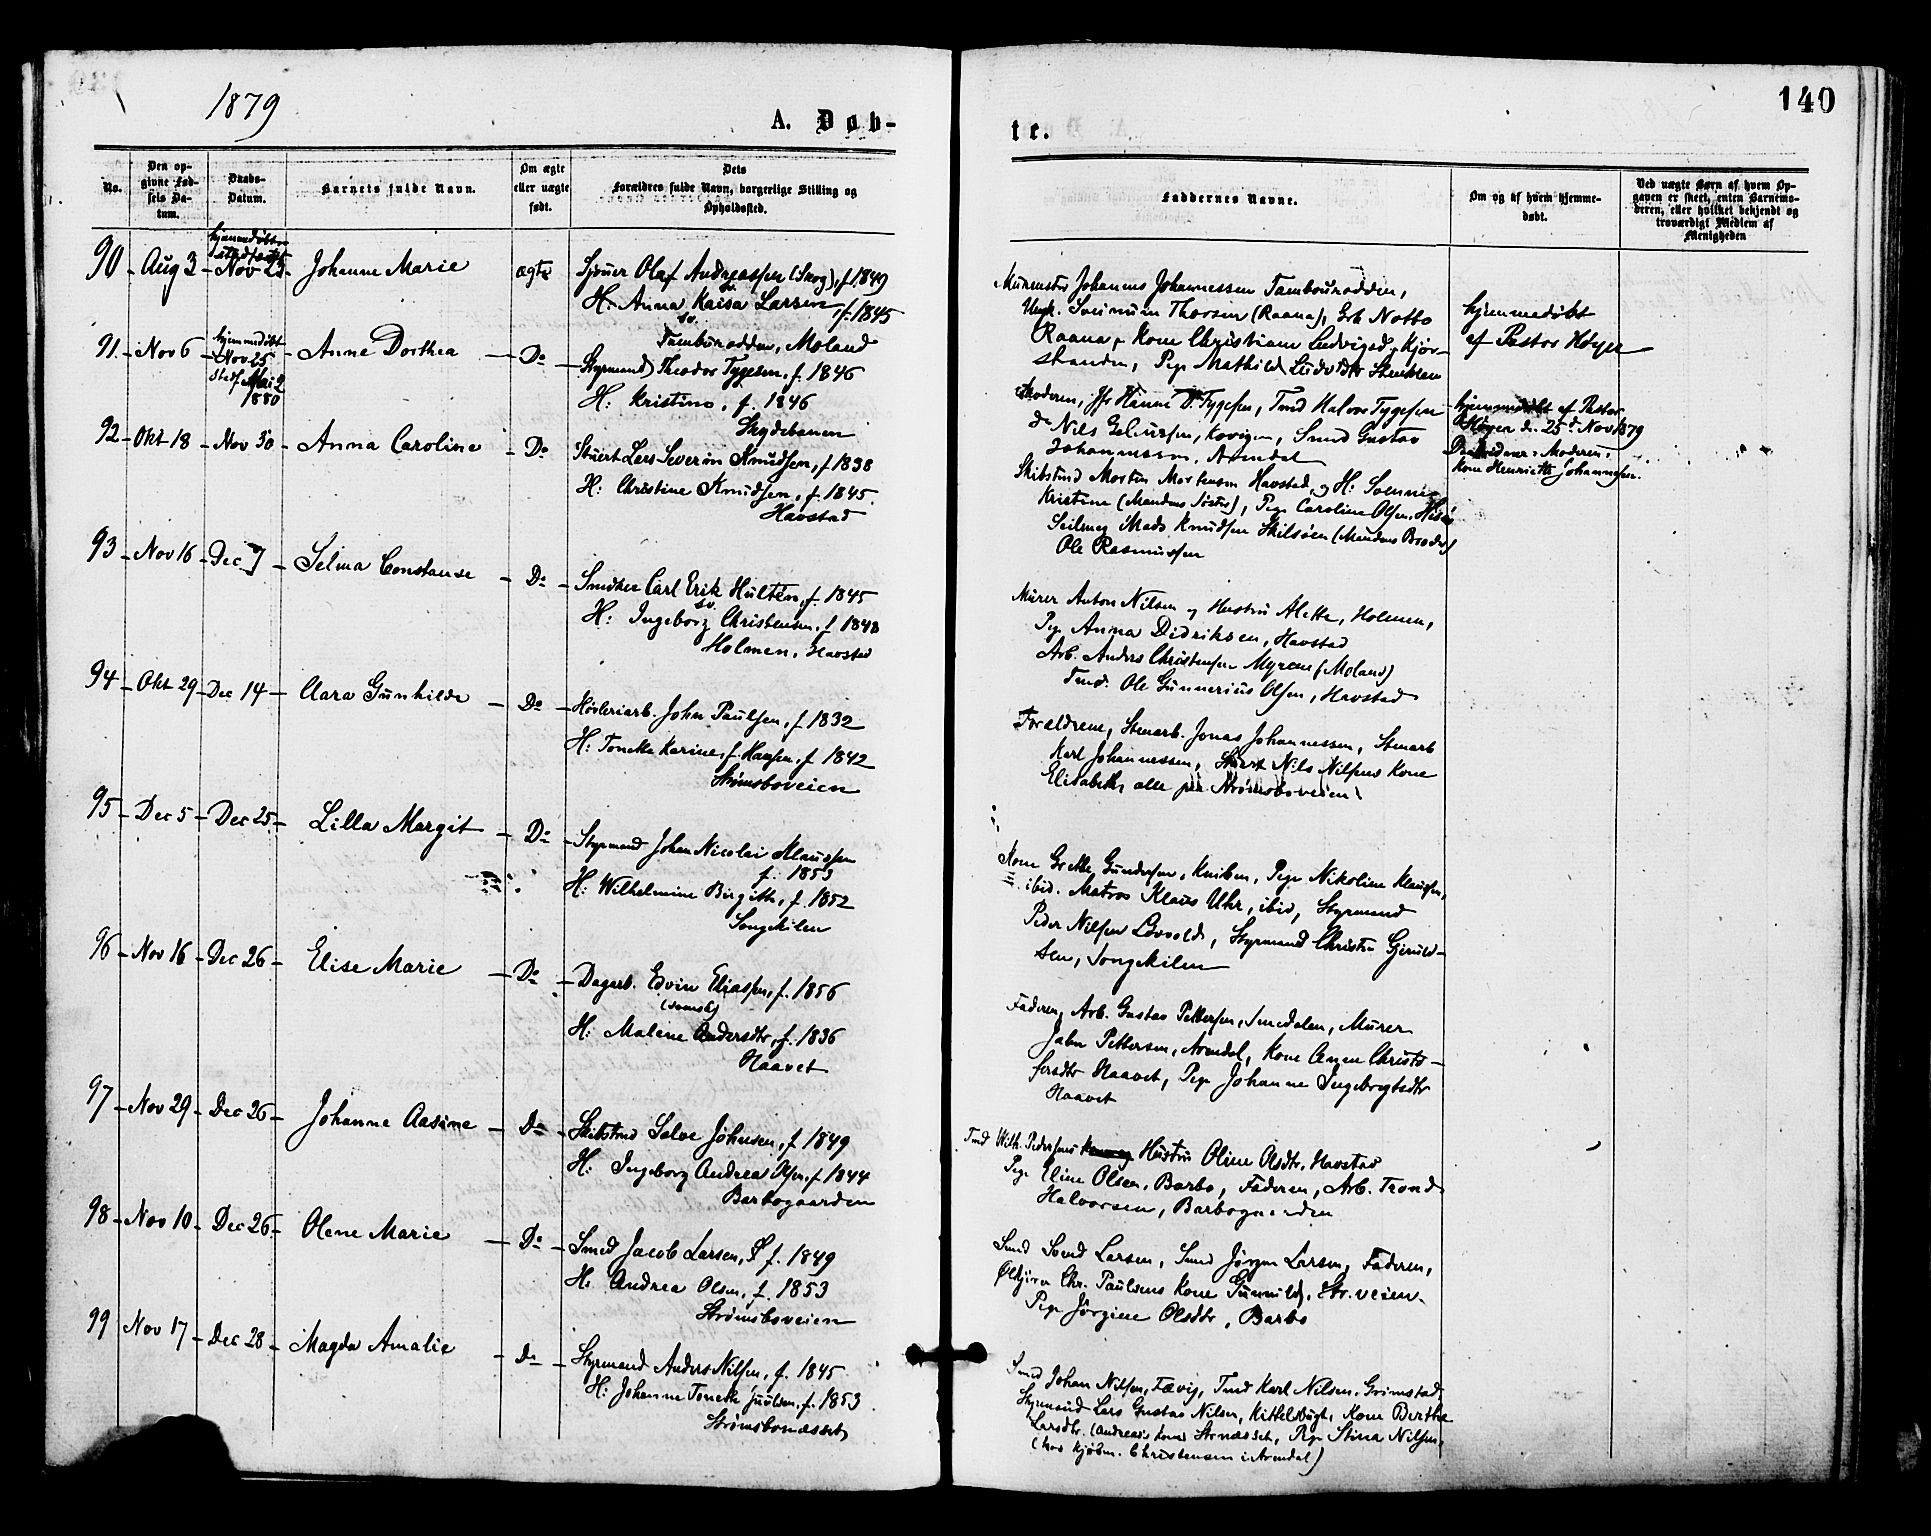 1879
140
A. Døb-
te.
No.
Den op-
givne Fød-
sels Da-
tum.
Daabs-
Datum.
Barnets fulde Navn.
Om ægte
eller uægte
født.
Dets
Forældres fulde Navn, borgerlige Stilling og
Opholdssted.
Faddernes Navne.
Om og af hvem hjemme-
døbt.
Ved uægte Børn af hvem Op-
gaven er skeet, enten Barnemo-
deren, eller hvilket bekjendt og
troværdigt Medlem af
Menigheden
hjemmedøbt
90 Aug 3 Nov 23 Johanne Marie ægte Olaf Andreassen (Skog), f. 1849
H. Anna Kaisa Larsen, f. 1845
sv.
Tambursodden, Moland
Murmester Johannes Johannessen Tambourodden,
Thorsen (Raana), Grb Notto
Raana, Kone Christiane Ludvigsd. Kjør-
stranden, Pige Mathilde
hjemmedøbt
af Pastor Høyer
hjemmedøbt
91 Nov 6 Nov 25 Anne Dorthea Do Styrmand Theodor Tygesen, f. 1846
Stadf. Mai 2
1880
H: Kristine, f. 1846
Skydebanen
Moderen, Jfr Hanne Tygesen, Tmd Halvor Tygesen
Nils Smed Gustav
Johannessen, Arendal
hjemmedøbt af Pastor
Høyer d. 25d Nov 1879
Moderen,
Kone Henriette Johannesen.
92 Okt 18 Nov 30 Anna Caroline Do Stuert Lars Severin Knudsen, f 1838
H: Christine Knudsen, f. 1845
Havstad
Skibstmd Morten Mortensen Havstad, og H:
Kristine (Mandens Søster), Pige Caroline Olsen, Hisø
Seilmag Mads Knudsen Skilsøen (Mandens Broder)
Ole Rasmussen
93 Nov 16 Dec 7 Selma Constanse Do Snedker Carl Erik Hultén, f. 1845
sv.
H: Ingeborg Christensen, f 1848
Holmen, Havstad
Murer Anton Nilsen og Hustru Alette, Holmen,
Pige Anna Didriksen, Havstad
Arb. Anders Christensen Myrene (Moland)
Tmd. Ole Gunnerius Olsen, Havstad
94 Okt 29 Dec 14 Clara Gunhilde Do Høvleriarb. John Paulsen, f 1832
H: Tonette Karine, f. Hansen, f 1842
Strømsboveien
Forældrene, Stenarb. Jonas Johannessen, Stenarb
Karl Johannessen, Nils Nilsens Kone
Elisabeth, alle paa Strømsboveien
95 Dec 5 Dec 25 Lilla Margit Do Styrmand Johan Nicolai Klaussen
f. 1853
H: Wilhelmine Birgitte, f. 1852
Songekilen
Kone Grethe Gundersen, Kniben, Pige Nikoline Klausen,
ibid. Matros Klaus Uhr, ibid, Styrmand
Peder Nilsen Styrmand Christen Gjeruld-
sen, Songekilen
96 Nov 16 Dec 26 Elise Marie Do Dagarb. Edvin Eliassen, f. 1856
(svensk)
H: Malene Andersdtr, f. 1836
Haavet
Faderen, Arb. Gustav Pettersen, Smedalen, Murer
Pettersen, Arendal, Kone Anne Christo-
fersdtr Haavet, Pige Johanne Ingebrigtsdtr
Haavet
97 Nov 29 Dec 26 Johanne Aasine Do Skibstmd Salve Johnsen, f 1849
H: Ingeborg Andrea Olsen, f 1844
Barbogaarden
Tmd Wilh. Pedersens Hustru Oline Olsdtr, Havstad
Pige Eline Olsen, Barbo, Faderen, Arb. Trond
Halvorsen, Barbogaarden
98 Nov 10 Dec 26 Olene Marie Do Smed Jacob Larsen, f. 1849
H: Andrea Olsen, f. 1853
Strømsboveien
Smed Larsen, Smed Jørgen Larsen, Faderen,
Chr. Paulsens Kone Gunnild, Str.veien.
Pige Jørgine Olsdtr, Barbo
99 Nov 17 Dec 28 Magda Amalie do Styrmand Anders Nilsen, f. 1845
H: Johanne Tonette Juulsen, f. 1853
Strømsbonæsset
Smed Johan Nilsen, Fævig, Tmd Karl Nilsen, Grimstad,
Styrmand Lars Gustav Nilsen, Kittelsbugt, Kone Berthe
Larsdtr. (Andreas's Kone) Strnæsset, Pige Stina Nilsen,
(hos Kjøbm. Christensen i Arendal)